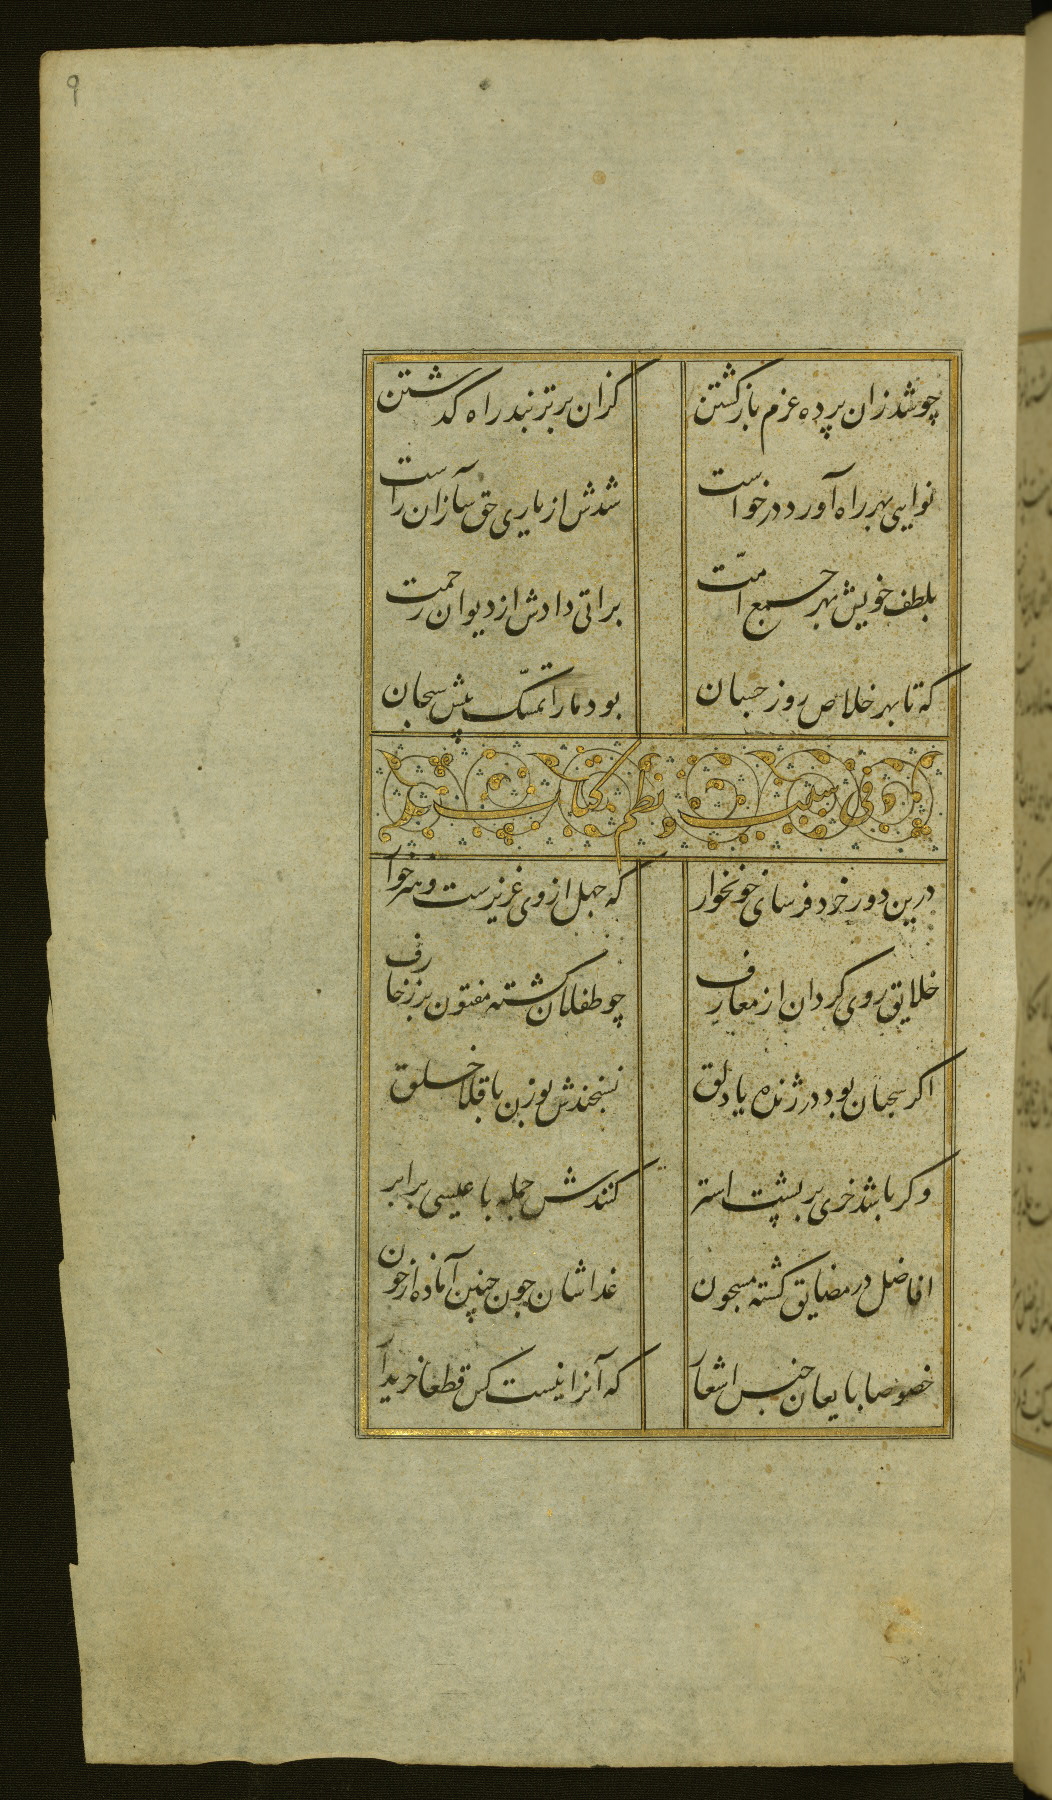 ۹
چو شد زان پرده عزم بازگشتن
کزان برتر نبد راه گذشتن
نوایی بهر راه آورد درخواست
شدش از یاری حق سازان راست
بلطف خویش بهر جمع امّت
براتی دادش از دیوان رحمت
که تا بهر خلاص روز حسبان
بود ما را تمسّک پیش سبحان
در سبب نظم کتاب
درین دور خرد فرسای خونخوار
که جهل از وی عزیزست و هنر خوار
خلایق روی کردان از معارف
چو طفلان کشته مفتون بر زخارف
اکر سحبان بود در ژنده یا دلق
نسنجندش بوزن باقلا خلق
و کر باشد خری بر پشت استر
کنندش جمله با عیسی برابر
افاضل در مضایق کشته مسجون
غداشان چون جنین آماده از خون
خصوصا بایعان جنس اشعار
که آنرا نیست کس قطعا خریدار